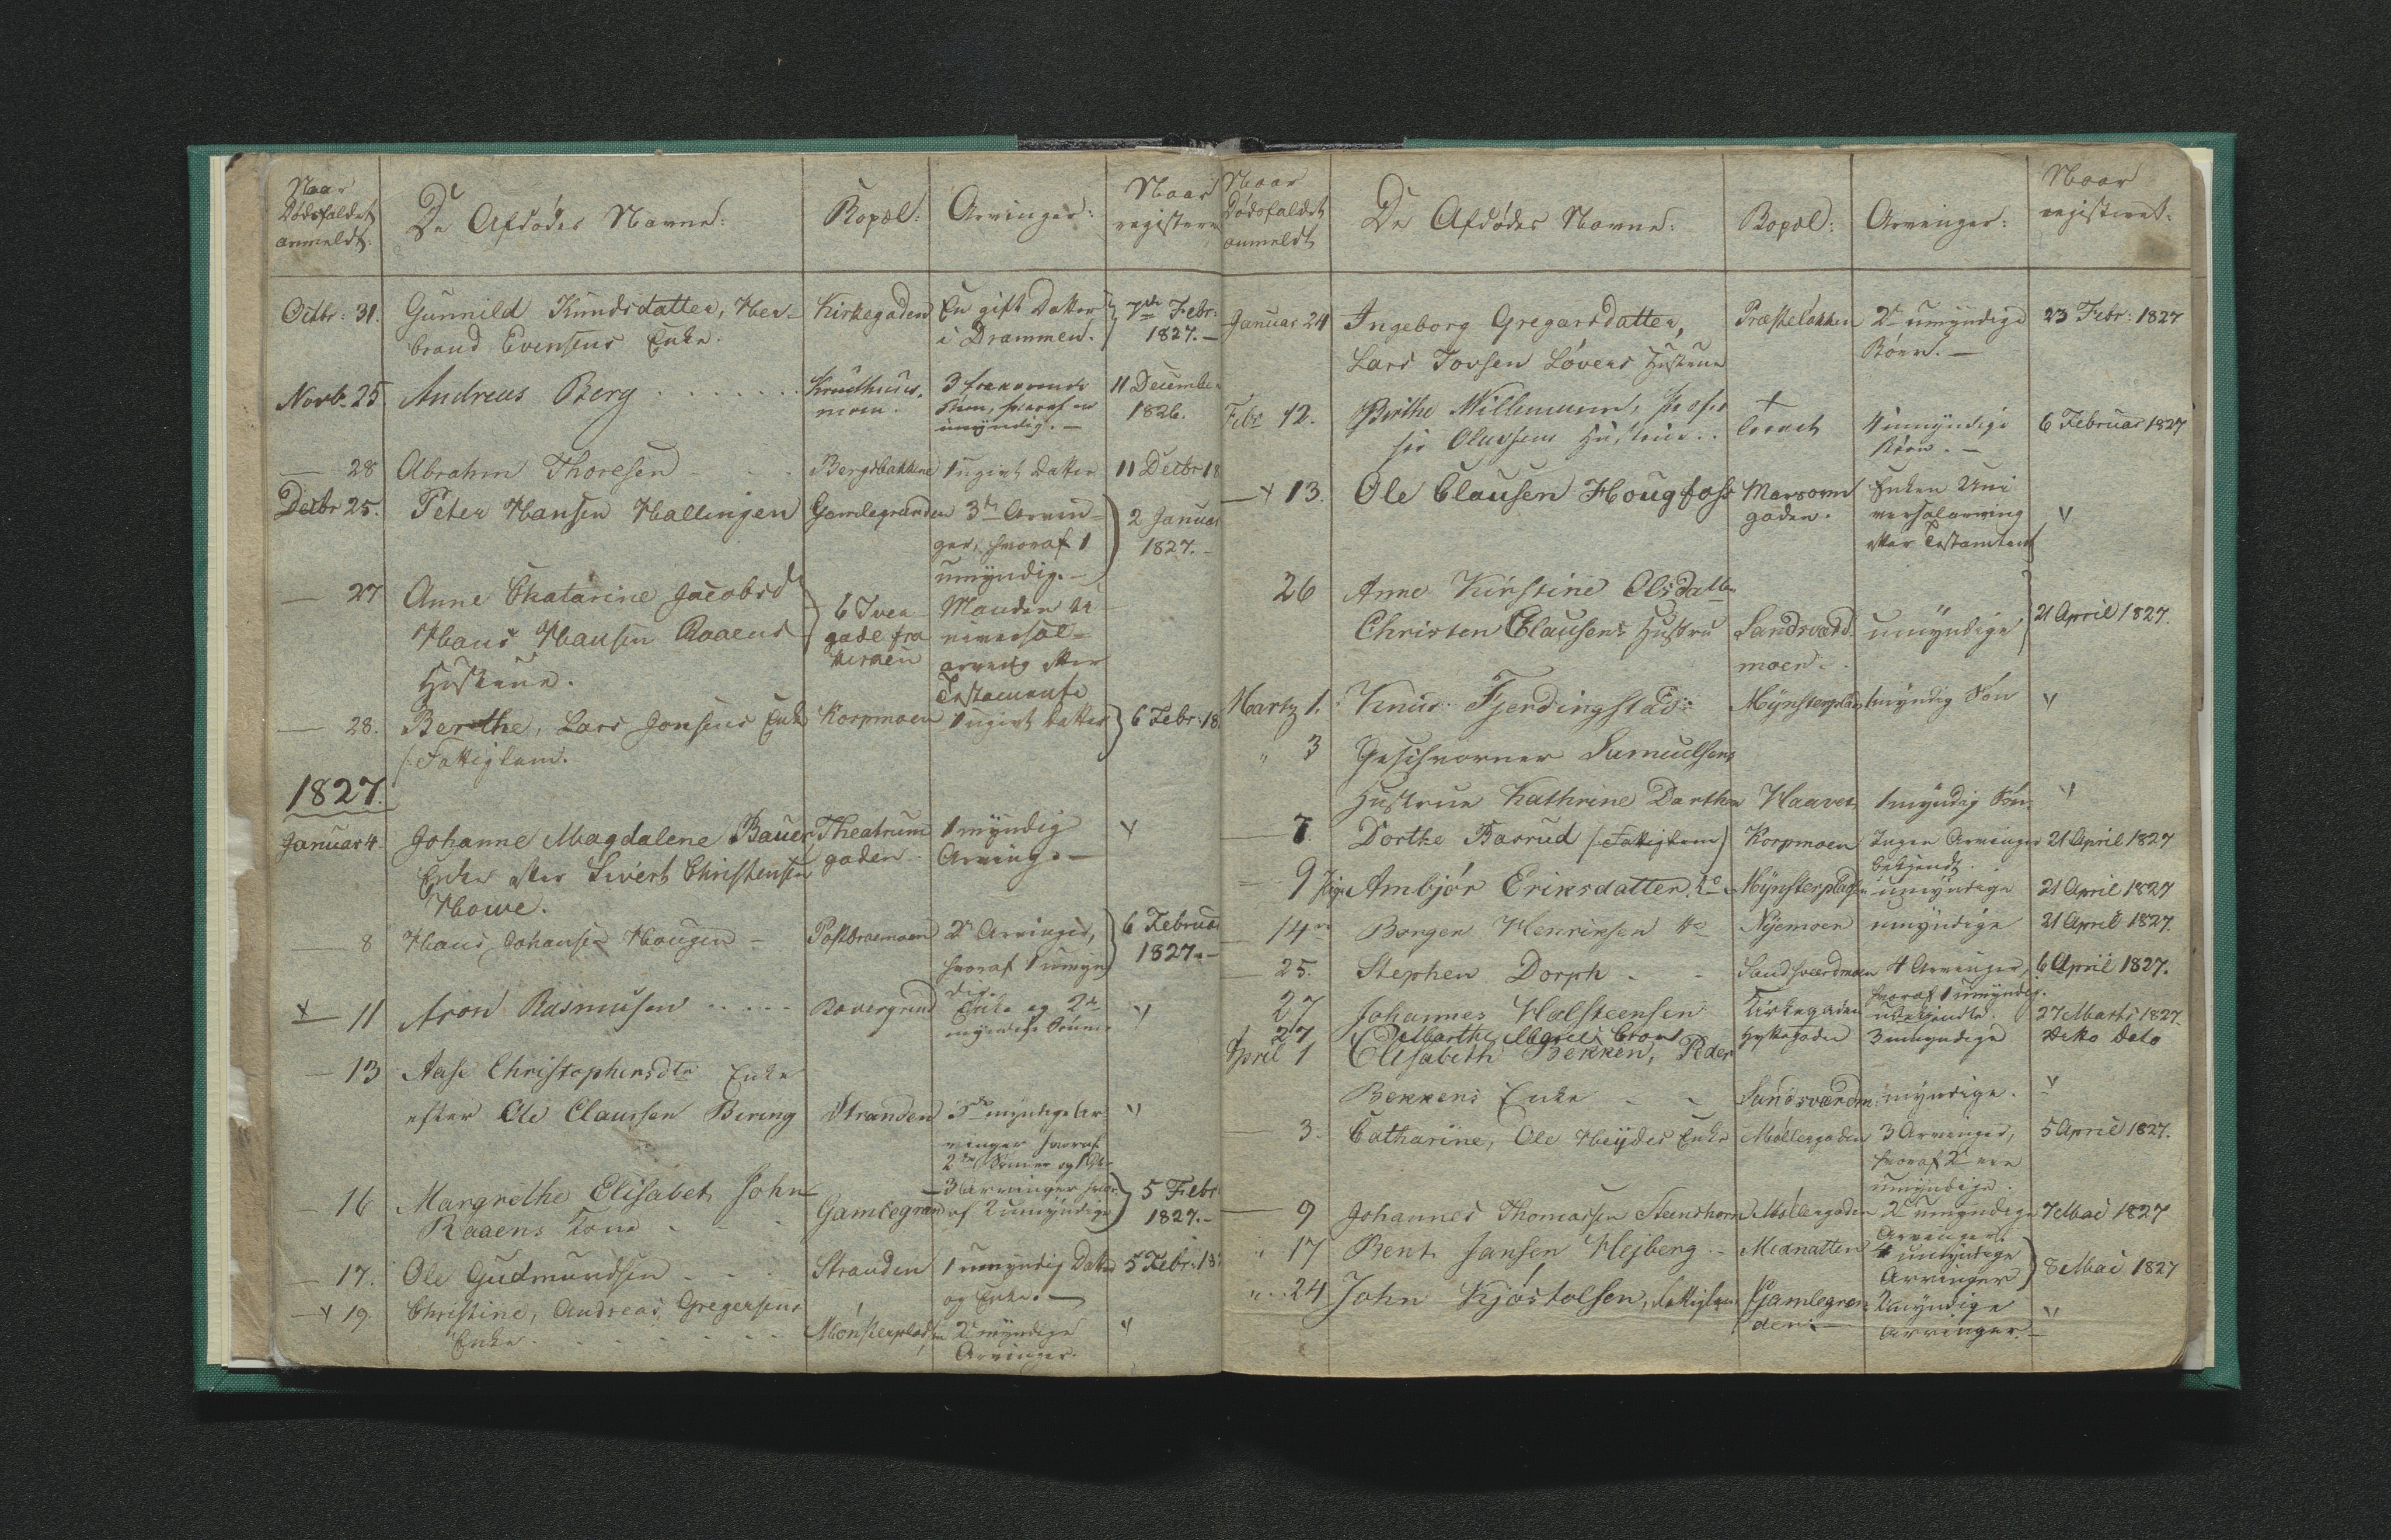 Naar
Dødsfaldet
anmeldt:
De Afdødes Navne:
Bopæl:
Arvinger:
Naar
registere
Octbr: 31.
Gunnild Knudsdatter, Her-
brand Evensens Enke.
Kirkegaden
En gift Datter
i Drammen.
7de Febr:
1827.-
Novb. 25
Andreas Berg
Kruthuus-
moen.
3 fraværende
Børn, hvoraf en
umyndig.-
11 December
1826.
- 28
Abrahm Thoresen
Bergsbakkene
1 ugivt Datter
11 Decbr 18
Decbr 25.
Peter Hansen Hallingen
Gamlegrunden
3de Arvin-
ger, hvoraf 1
umyndig.-
2 Januar
1827.-
- 27
Anne Chatarine Jacobsd
Hans Hansen Raaens
Hustrue.
6 Tver
gade fra
Kirken
Manden u-
niversal-
arving efter
Testamente
- 28.
Berthe, Lars Jonsens Enke
/: Fattiglem.
Korpmoen
1 ugivt Datter
6 Febr: 18
1827.
Januar 4.
Johanne Magdalene Bauer
Enke efter Sivert Christensen
Howe.
Theatrum
gaden
1 myndig
Arving.-
- 8
Hans Johansen Hougen -
Postbraemoen
2de Arvinger,
hvoraf 1 umyn
dig.
6 Februar
1827.-
- 11
Aron Rasmusen
Bævergrund
Enke og 2de
myndige Sønner
- 13
Aase Christophersdtr Enke
efter Ole Claussen Bering
Stranden
5de myndige Ar
vinger hvoraf
2de Sønner og
- 16
Margrethe Elisabet John
Raaens Kone
Gamlegrund
3 Arvinger hvor
af 2 umyndige
5 Febr
1827.-
- 17.
Ole Gudmundsen
Stranden
1 umyndig Datter
og Enke.-
5 Febr: 18
- 19.
Christine, Andreas Gregersens
Enke
Mønsterpladsen
2de myndige
Arvinger.
Naar
Dødsfaldet
anmeldt
De Afdødes Navne:
Bopæl:
Arvinger:
Naar
registeret:
Januar 24
Ingeborg Gregarsdatter,
Lars Tovsen Løvers Hustrue
Præsteløkken
2de umyndige
Børn.-
23 Febr: 1827
Febr 12.
Birthe Millemann,
Olussens Hustrue..
4 umyndige
Børn.-
6 Februar 1827
- 13.
Ole Clausen Hougfoss
Marsovn
gaden.
Enken Uni
versalarving
efter Testament
26
Anne Kirstine Olsdatter
Christen Clausens Hustru
Sandsværd-
moen.
umyndige
21 April 1827.
Martz 1.
Knud Fjerdingstad:
Mynsterplads
1 myndig Søn
" 3
Geschvorner Samuelsens
Hustrue Kathrine Dorthea
Haavet
1 myndig Søn
- 7.
Dorthe Basrud /: Fattiglem)
Korpmoen
Ingen Arvinger
bekjendt.
21 April 1827
- 9
Ambjør Eriksdatter.
Mynsterpladsen
umyndige
21 April 1827
- 14
Borger Henriksen
Nyemoen
umyndige
21 April 1827.
- 25.
Stephen Dorph
Sandsværdmoen
4 Arvinger,
hvoraf 1 umyndig.
6 April 1827.
27
Johannes Halsteensen
Kirkegaden
ubekjendte.
27 Marts 1827.
27
Marthe Marie
Hyttegaden
3 umyndige
dito dato
April 1
Elisabeth Bekken, Peder
Bekkens Enke
Sandsværdm:
myndige.
- 3.
Catharine, Ole Heyders Enke
Møllergaden
3 Arvinger,
hvoraf 2de ere
umyndige.
5 April 1827.
- 9
Johannes Thomassen Steenshorn
Møllergaden
2de umyndige
Arvinger.
7 Mai 1827
" 17
Bent Jansen Hejberg -
Midnatten
4 umyndige
Arvinger
8 Mai 1827
" 24
John Kjøstolsen, Fattiglem
Gamlegrun
den:-
2 myndige
Arvinger.-